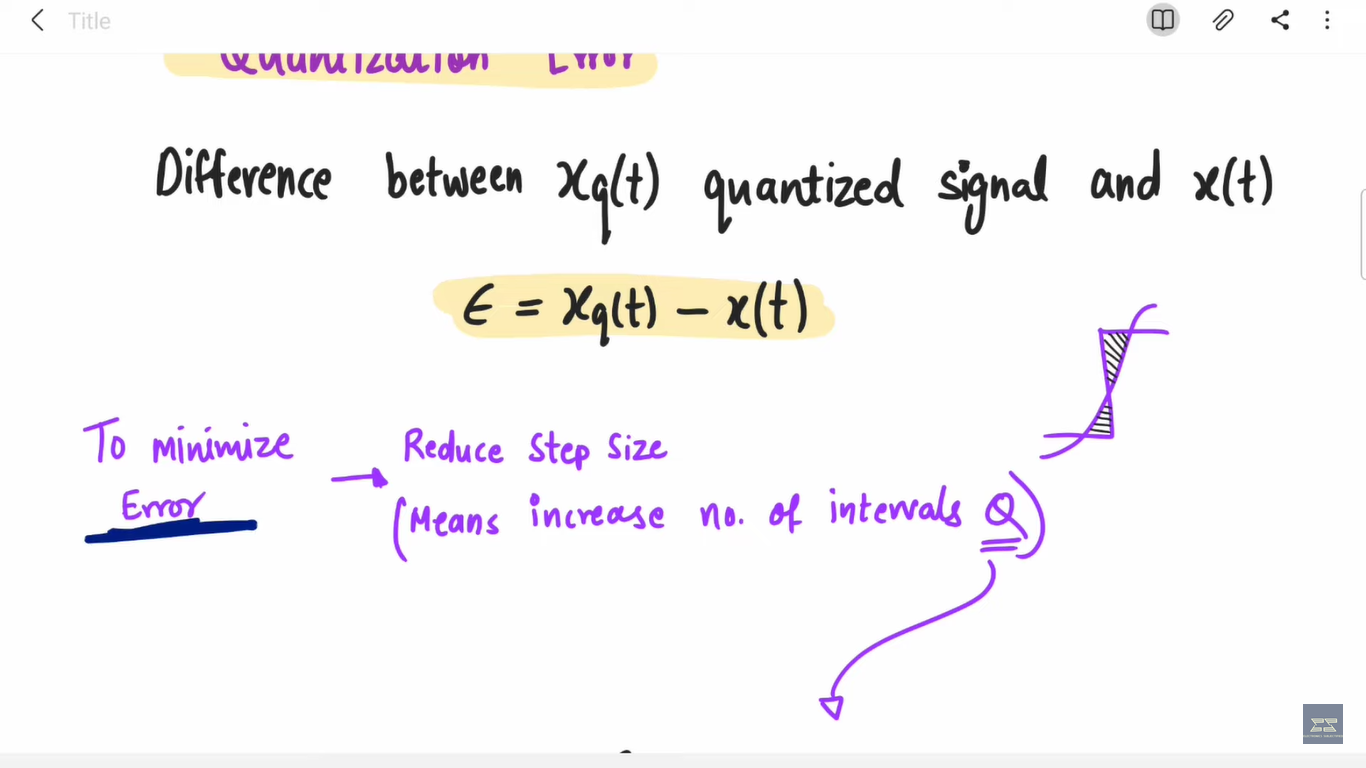 Title
Quantization Error
Difference between xq(t) quantized signal and x(t)
ϵ = xq(t) − x(t)
To minimize
Error
→ Reduce Step Size
(Means increase no. of intervals Q)